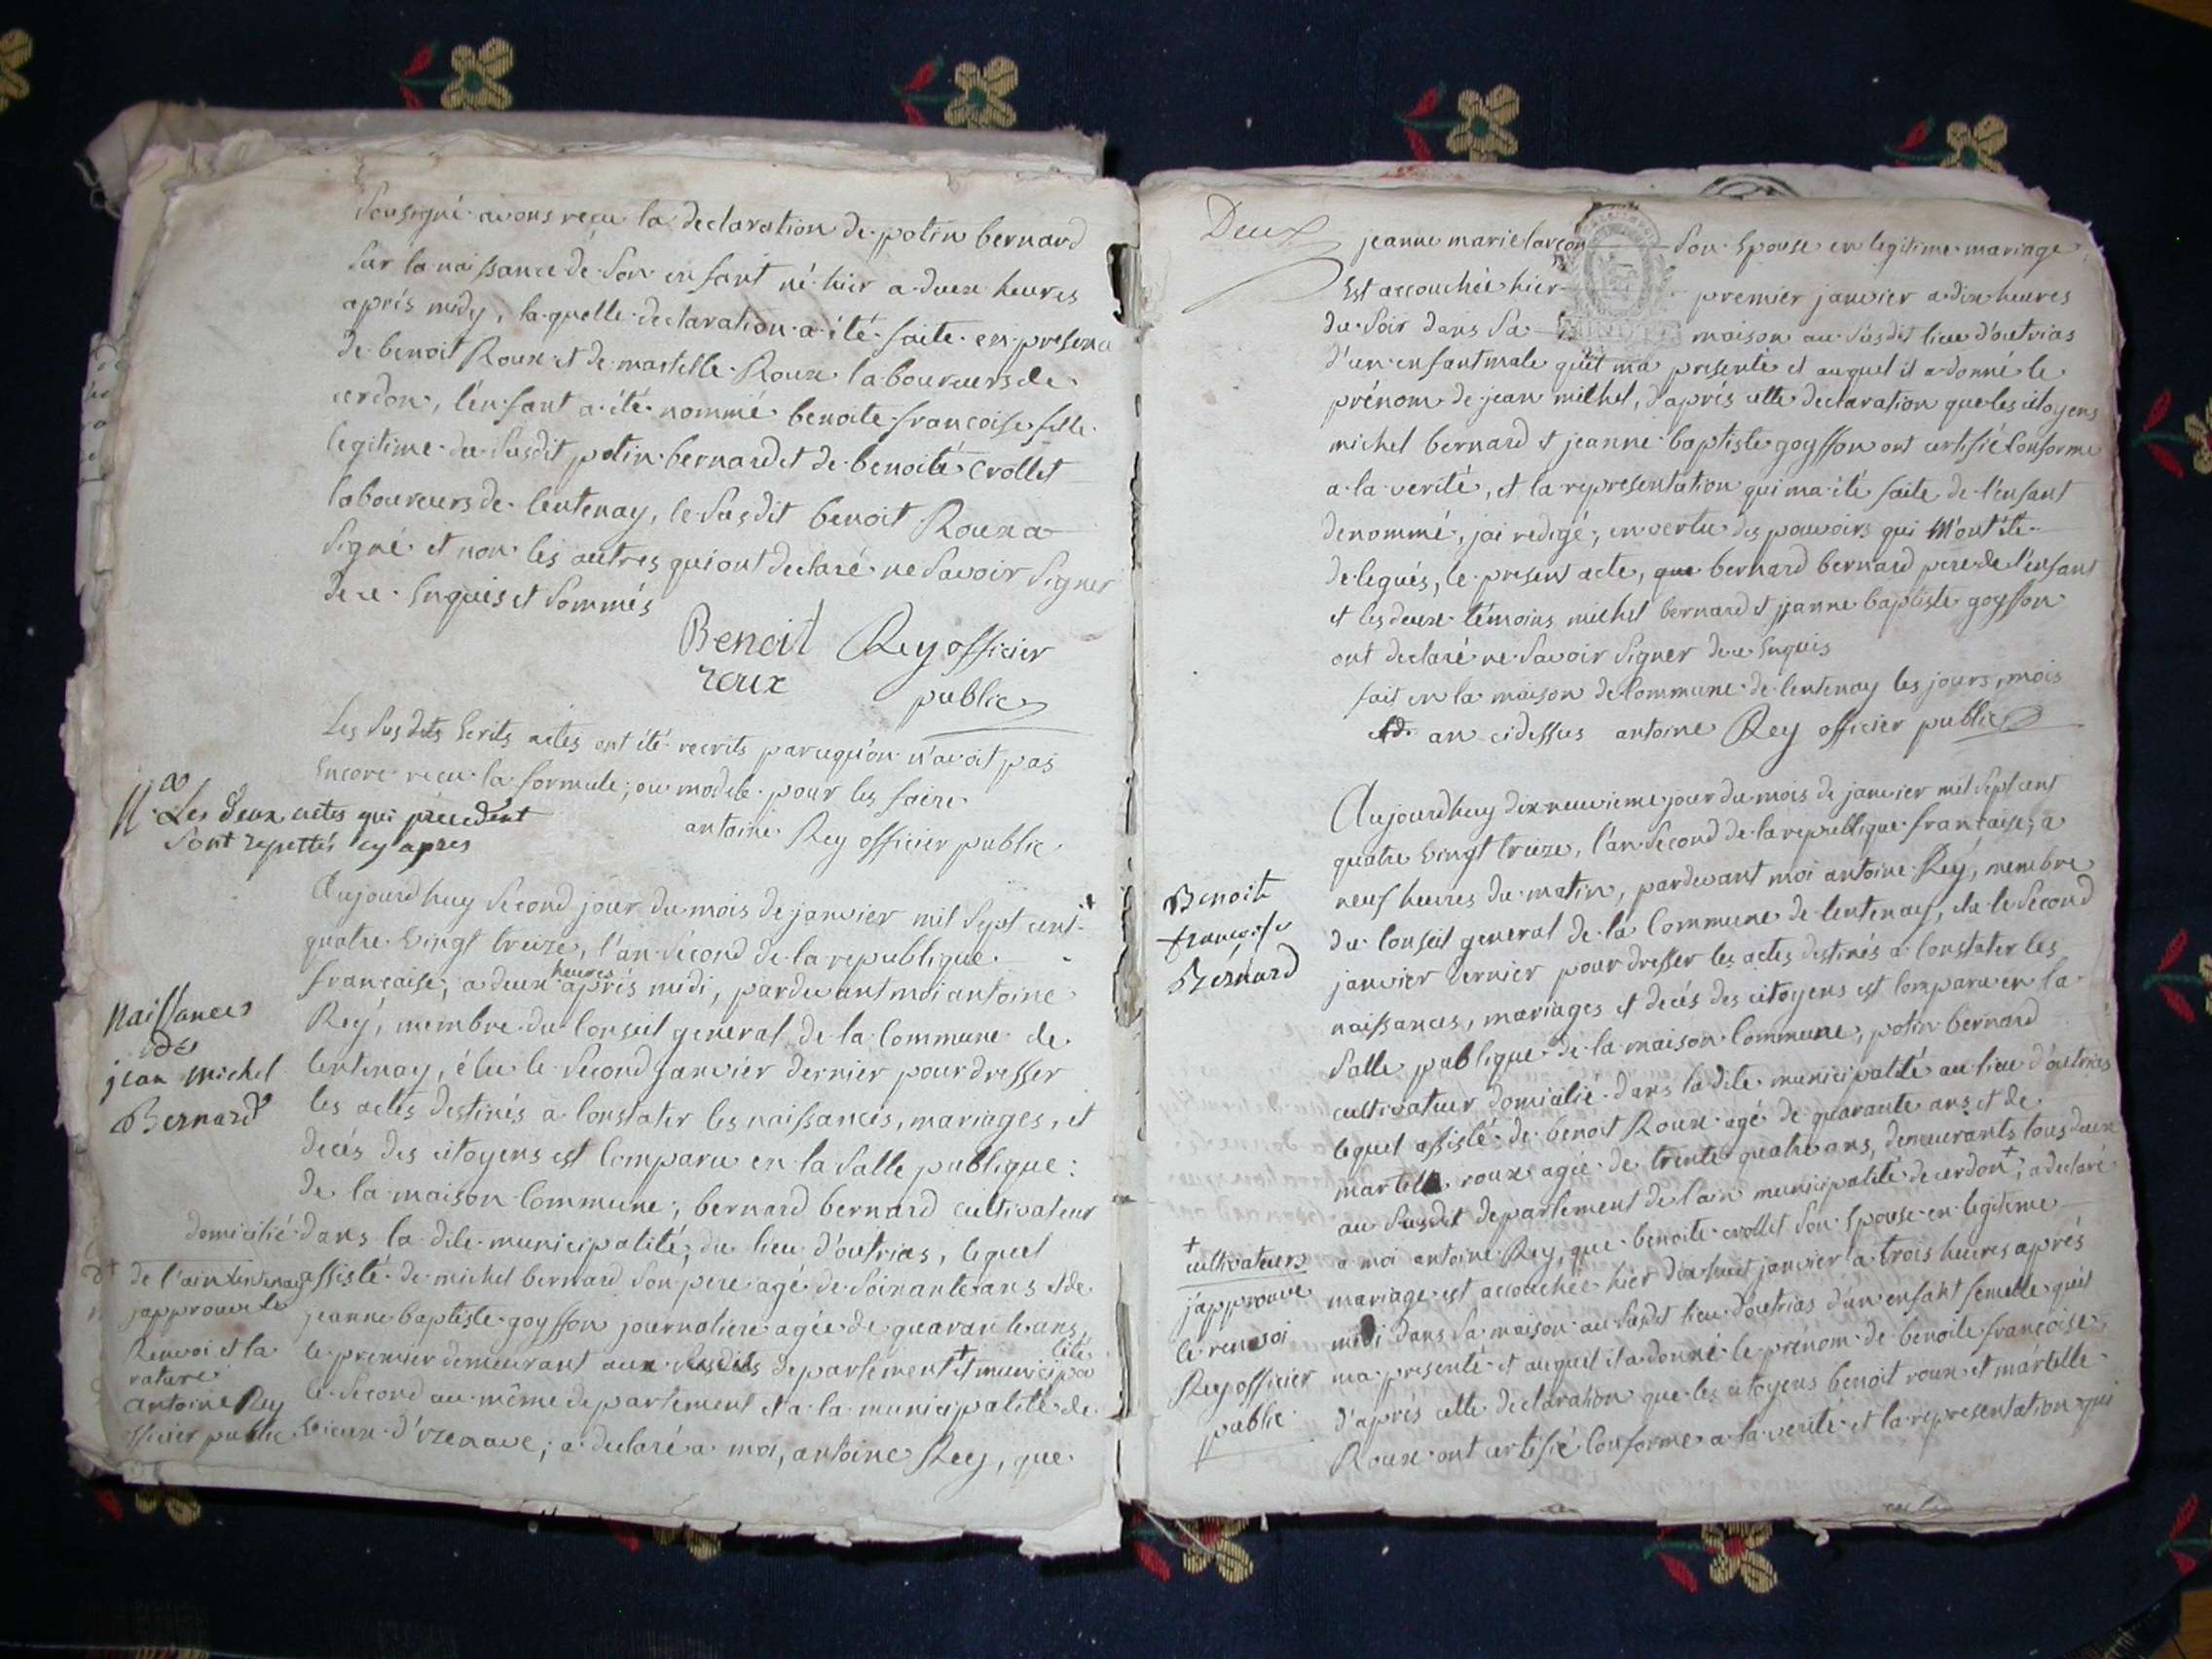 Sousigné avons reçu la declaration de potin bernard
sur la naissance de son enfant né hier a deux heures
après midy, la quelle declaration a été faite en presence
de benoit Roux et de martelle Roux laboureurs de
cerdon, l'enfant a été nommé benoite françoise fille
legitime du susdit potin bernard et de benoite Crollet
laboureurs de lentenay, le susdit benoit Roux a
signé et non les autres qui ont declaré ne savoir signer
de ce enquis et sommés
Benoit Rey officier
roux public
Les susdits Ecrits actes ont été recrits parcequ'on n'avoit pas
encore reçu la formule, ou modele pour les faire
antoine Rey officier public
Les deux actes qui precedent
sont repettés cy apres
Aujourdhuy second jour du mois de janvier mil sept cent
quatre vingt treize, l'an second de la republique
heures
française, a deux après midi, pardevant moi antoine
Rey, membre du Conseil general de la Commune de
lentenay, élu le second janvier dernier pour dresser
les actes destinés a constater les naissances, mariages, et
decés des citoyens est comparu en la salle publique
de la maison Commune, bernard bernard cultivateur
domicilié dans la dite municipalité, du lieu d'outrias, lequel
assisté de michel bernard son pere agé de soixante ans et de
jeanne baptiste goysson journaliere agée de quarante ans,
le premier demeurant aux susdits departement + et municipa
lité
le second au même departement et a la municipalité de
vieux d'izenave, a declaré a moi, antoine Rey, que
Naissances
de
jean michel
Bernard
de l'ain lentenay
japprouve le
Renvoi et la
rature
antoine Rey
officier public
Deux
jeanne marie larçon son Epouse en legitime mariage,
Est accouchée hier premier janvier a dix heures
du soir dans sa maison au susdit lieu d'outrias
d'un enfant male qu'il ma presenté et auquel il a donné le
prénom de jean michel, d'après cette declaration que les citoyens
michel bernard et jeanne baptiste goysson ont certifié conforme
a la verité, et la representation qui ma été faite de l'enfant
denommé, jai redigé, en vertu des pouvoirs qui m'ont été
delegués, le present acte, que bernard bernard pere de l'enfant
et les deux témoins michel bernard et jeanne baptiste goysson
ont declaré ne savoir signer de ce Enquis
fait en la maison de Commune de lentenay les jours, mois
et an cidessus antoine Rey officier public
Aujourdhuy dix neuvieme jour du mois de janvier mil sept cent
quatre vingt treize, l'an second de la republique française, a
neuf heures du matin, pardevant moi antoine Rey, membre
du Conseil general de la Commune de lentenay, élu le second
janvier dernier pour dresser les actes destinés a constater les
naissances, mariages et decés des citoyens est comparu en la
salle publique de la maison Commune, potin bernard
cultivateur domicilié dans la dite municipalité au lieu d'outrias
lequel assisté de benoit Roux agé de quarante ans et de
martelle roux agée de trente quatre ans, demeurants tous deux
au susdit departement de l'ain municipalité de cerdon +, a declaré
a moi antoine Rey, que benoite crollet son Epouse en legitime
mariage est accouchée hier dix huit janvier a trois heures après
midi dans sa maison au susdit lieu d'outrias d'un enfant femelle qu'il
ma presenté et auquel il a donné le prénom de benoite françoise,
d'après cette declaration que les citoyens benoit roux et martelle
Roux ont certifié conforme a la verité et la representation qui
Benoite
françoise
Bernard
+
cultivateurs
japprouve
le renvoi
Rey officier
public